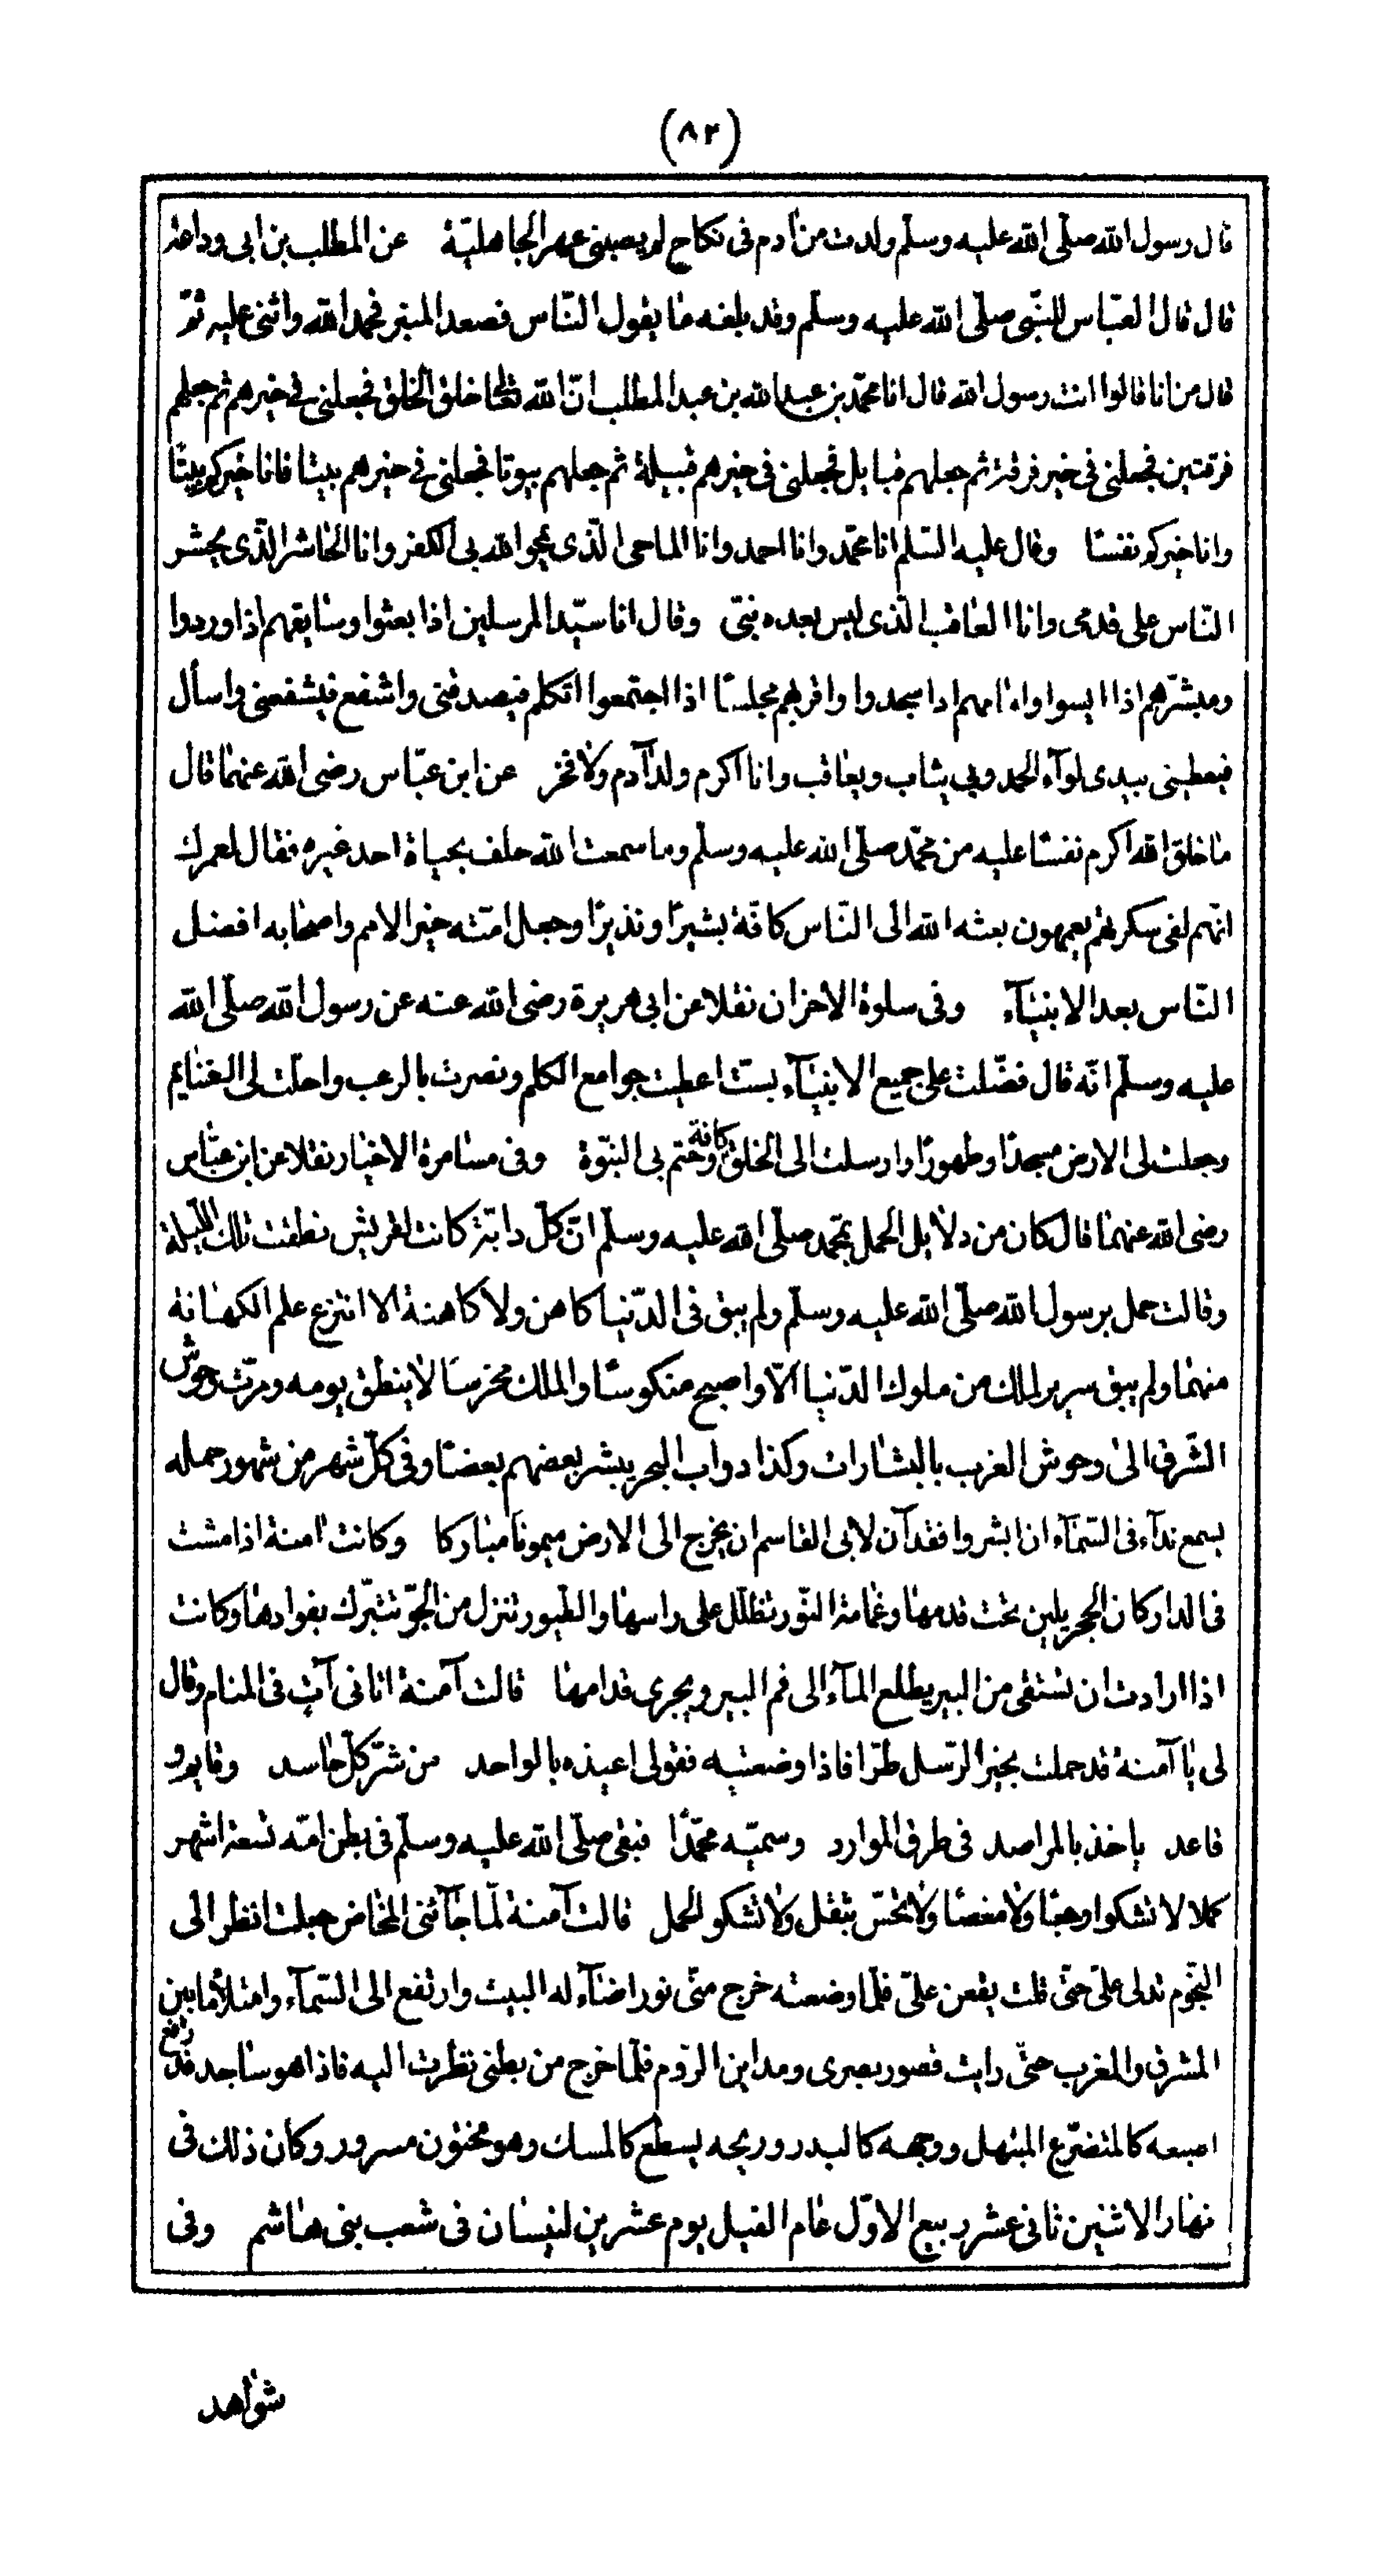 (٨٢)
قال رسول الله صلّى الله عليه وسلّم ولدت من آدم فى نكاح لم يصبنى عهر الجاهليّة عن المطلب بن ابى وداعة
قال قال العبّاس للنّبى صلّى الله عليه وسلّم وقد بلغه ما يقول النّاس فصعد المنبر فحمد الله واثنى عليه ثمّ
قال من انا قالوا انت رسول الله قال انا محمّد بن عبد الله بن عبد المطلب انّ الله تعالى خلق الخلق فجعلنى فى خيرهم ثم جعلهم
فرقتين فجعلنى فى خير فرقة ثم جعلهم قبايل فجعلنى فى خيرهم قبيلة ثم جعلهم بيوتا فجعلنى فى خيرهم بيتا فانا خيركم بيتًا
وانا خيركم نفسًا وقال عليه السّلم انا محمّد وانا احمد وانا الماحى الّذى يمحو الله بى الكفر وانا الحاشر الّذى يحشر
النّاس على قدمى وانا العاقب الّذى ليس بعده نبىّ وقال انا سيّد المرسلين اذا بعثوا وسابقهم اذا وردوا
ومبشّرهم اذا ايسوا وامامهم اذا سجدوا واقربهم مجلسًا اذا اجتمعوا اتكلم فيصدقنى واشفع فيشفعنى واسأل
فيعطينى بيدى لوآء الحمد وبى يثاب ويعاقب وانا اكرم ولد آدم ولا فخر عن ابن عبّاس رضى الله عنهما قال
ما خلق الله اكرم نفسًا عليه من محمّد صلّى الله عليه وسلّم وما سمعت الله حلف بحياة احد غيره فقال لعمرك
انّهم لفى سكرتهم يعمهون بعثه الله الى النّاس كافّة بشيرًا ونذيرًا وجعل امّته خير الامم واصحابه افضل
النّاس بعد الانبيآء وفى سلوة الاحزان نقلا عن ابى هريرة رضى الله عنه عن رسول الله صلّى الله
عليه وسلّم انّه قال فضّلت على جميع الانبيآء بستّ اعطيت جوامع الكلم ونصرت بالرعب واحلّت لى الغنايم
وجعلت لى الارض مسجدًا وطهورًا وارسلت الى الخلق كافة وختم بى النبوّة وفى مسامرة الاخبار نقلا عن ابن عبّاس
رضى الله عنهما قال كان من دلايل الحمل بمحمّد صلّى الله عليه وسلّم انّ كلّ دابّة كانت لقريش نطقت تلك اللّيلة
وقالت حمل برسول الله صلّى الله عليه وسلّم ولم يبق فى الدّنيا كاهن ولا كاهنة الا انتزع علم الكهانة
منهما ولم يبق سرير لملك من ملوك الدّنيا الّا واصبح منكوسًا والملك مخرسًا لا ينطق يومه ومرّت وحوش
الشّرق الى وحوش الغرب بالبشارات وكذا دواب البحر يبشر بعضهم بعضًا وفى كلّ شهر من شهور حمله
يسمع ندآء فى السّمآء ان ابشروا فقد آن لابى القاسم ان يخرج الى الارض ميمونًا مباركا وكانت امنة اذا مشت
فى الدار كان الحجر يلين تحت قدمها وغمامة النّور تظلّل على راسها والطّيور تنزل من الجوّ تتبّرك بفوادها وكانت
اذا ارادت ان تستقى من البير يطلع المآء الى فم البير ويجرى قدامها قالت آمنة اتانى آتٍ فى المنام وقال
لى يا آمنة قد حملت بخير الرّسل طرّا فاذا وضعتيه فقولى اعيذه بالواحد من شرّ كلّ حاسد وقايم و
قاعد ياخذ بالمراصد فى طرق الموارد وسميّه محمّدًا فبقى صلّى الله عليه وسلّم فى بطن امّه تسعة اشهر
كملا لا تشكو وجعًا ولا مغصًا ولا تحسّ بثقل ولا تشكو الحمل قالت آمنة لمّا جآئنى المخاض جعلت انظر الى
النّجوم تدلى علىّ حتّى قلت يقعن علىّ فلمّا وضعته خرج منّى نور اضآء له البيت وارتفع الى السّمآء وامتلأ ما بين
المشرق والمغرب حتّى رايت قصور بصرى ومداين الرّوم فلمّا خرج من بطنى نظرت اليه فاذا هو ساجد قد رافع
اصبعه كالمتضرّع المبتهل ووجهه كالبدر وريحه يسطع كالمسك وهو مختون مسرور وكان ذلك فى
نهار الاثنين ثانى عشر ربيع الاوّل عام الفيل يوم عشرين لنيسان فى شعب بنى هاشم وفى
شواهد